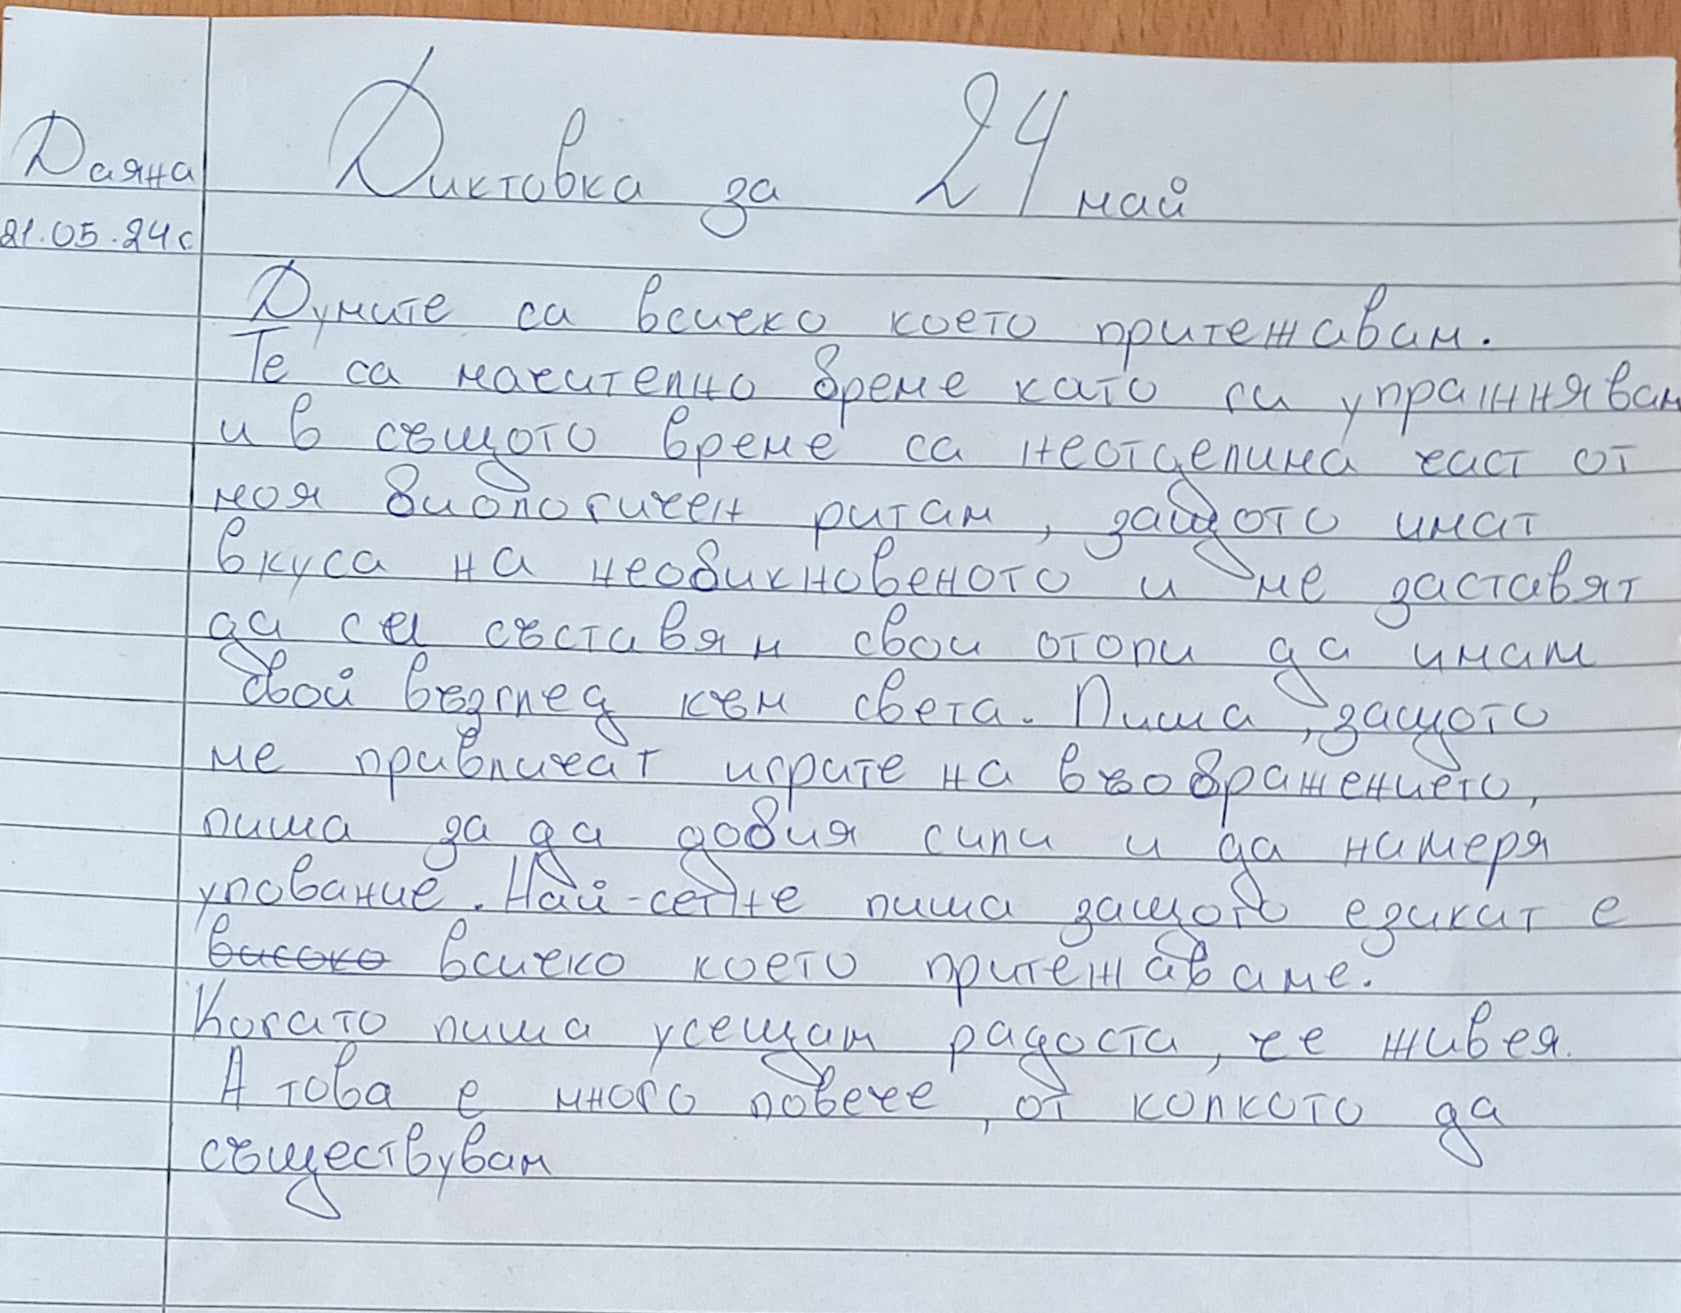 Даяна
Диктовка за 24 май
21.05.24г
Думите са всичко което притежавам.
Те са мачително време като ги упражнявам
и в същото време са неотделима част от
моя биологичен ритам, защото имат
вкуса на необикновеното и ме заставят
да си съставям свои опори да имам
свой възглед към света. Пиша, защото
ме привличат игрите на въображението,
пиша за да добия сили и да намеря
упование. Най-сетне пиша защото езикат е
високо всичко което притежаваме.
Когато пиша усещам радоста, че живея.
А това е много повече, от колкото да
съществувам